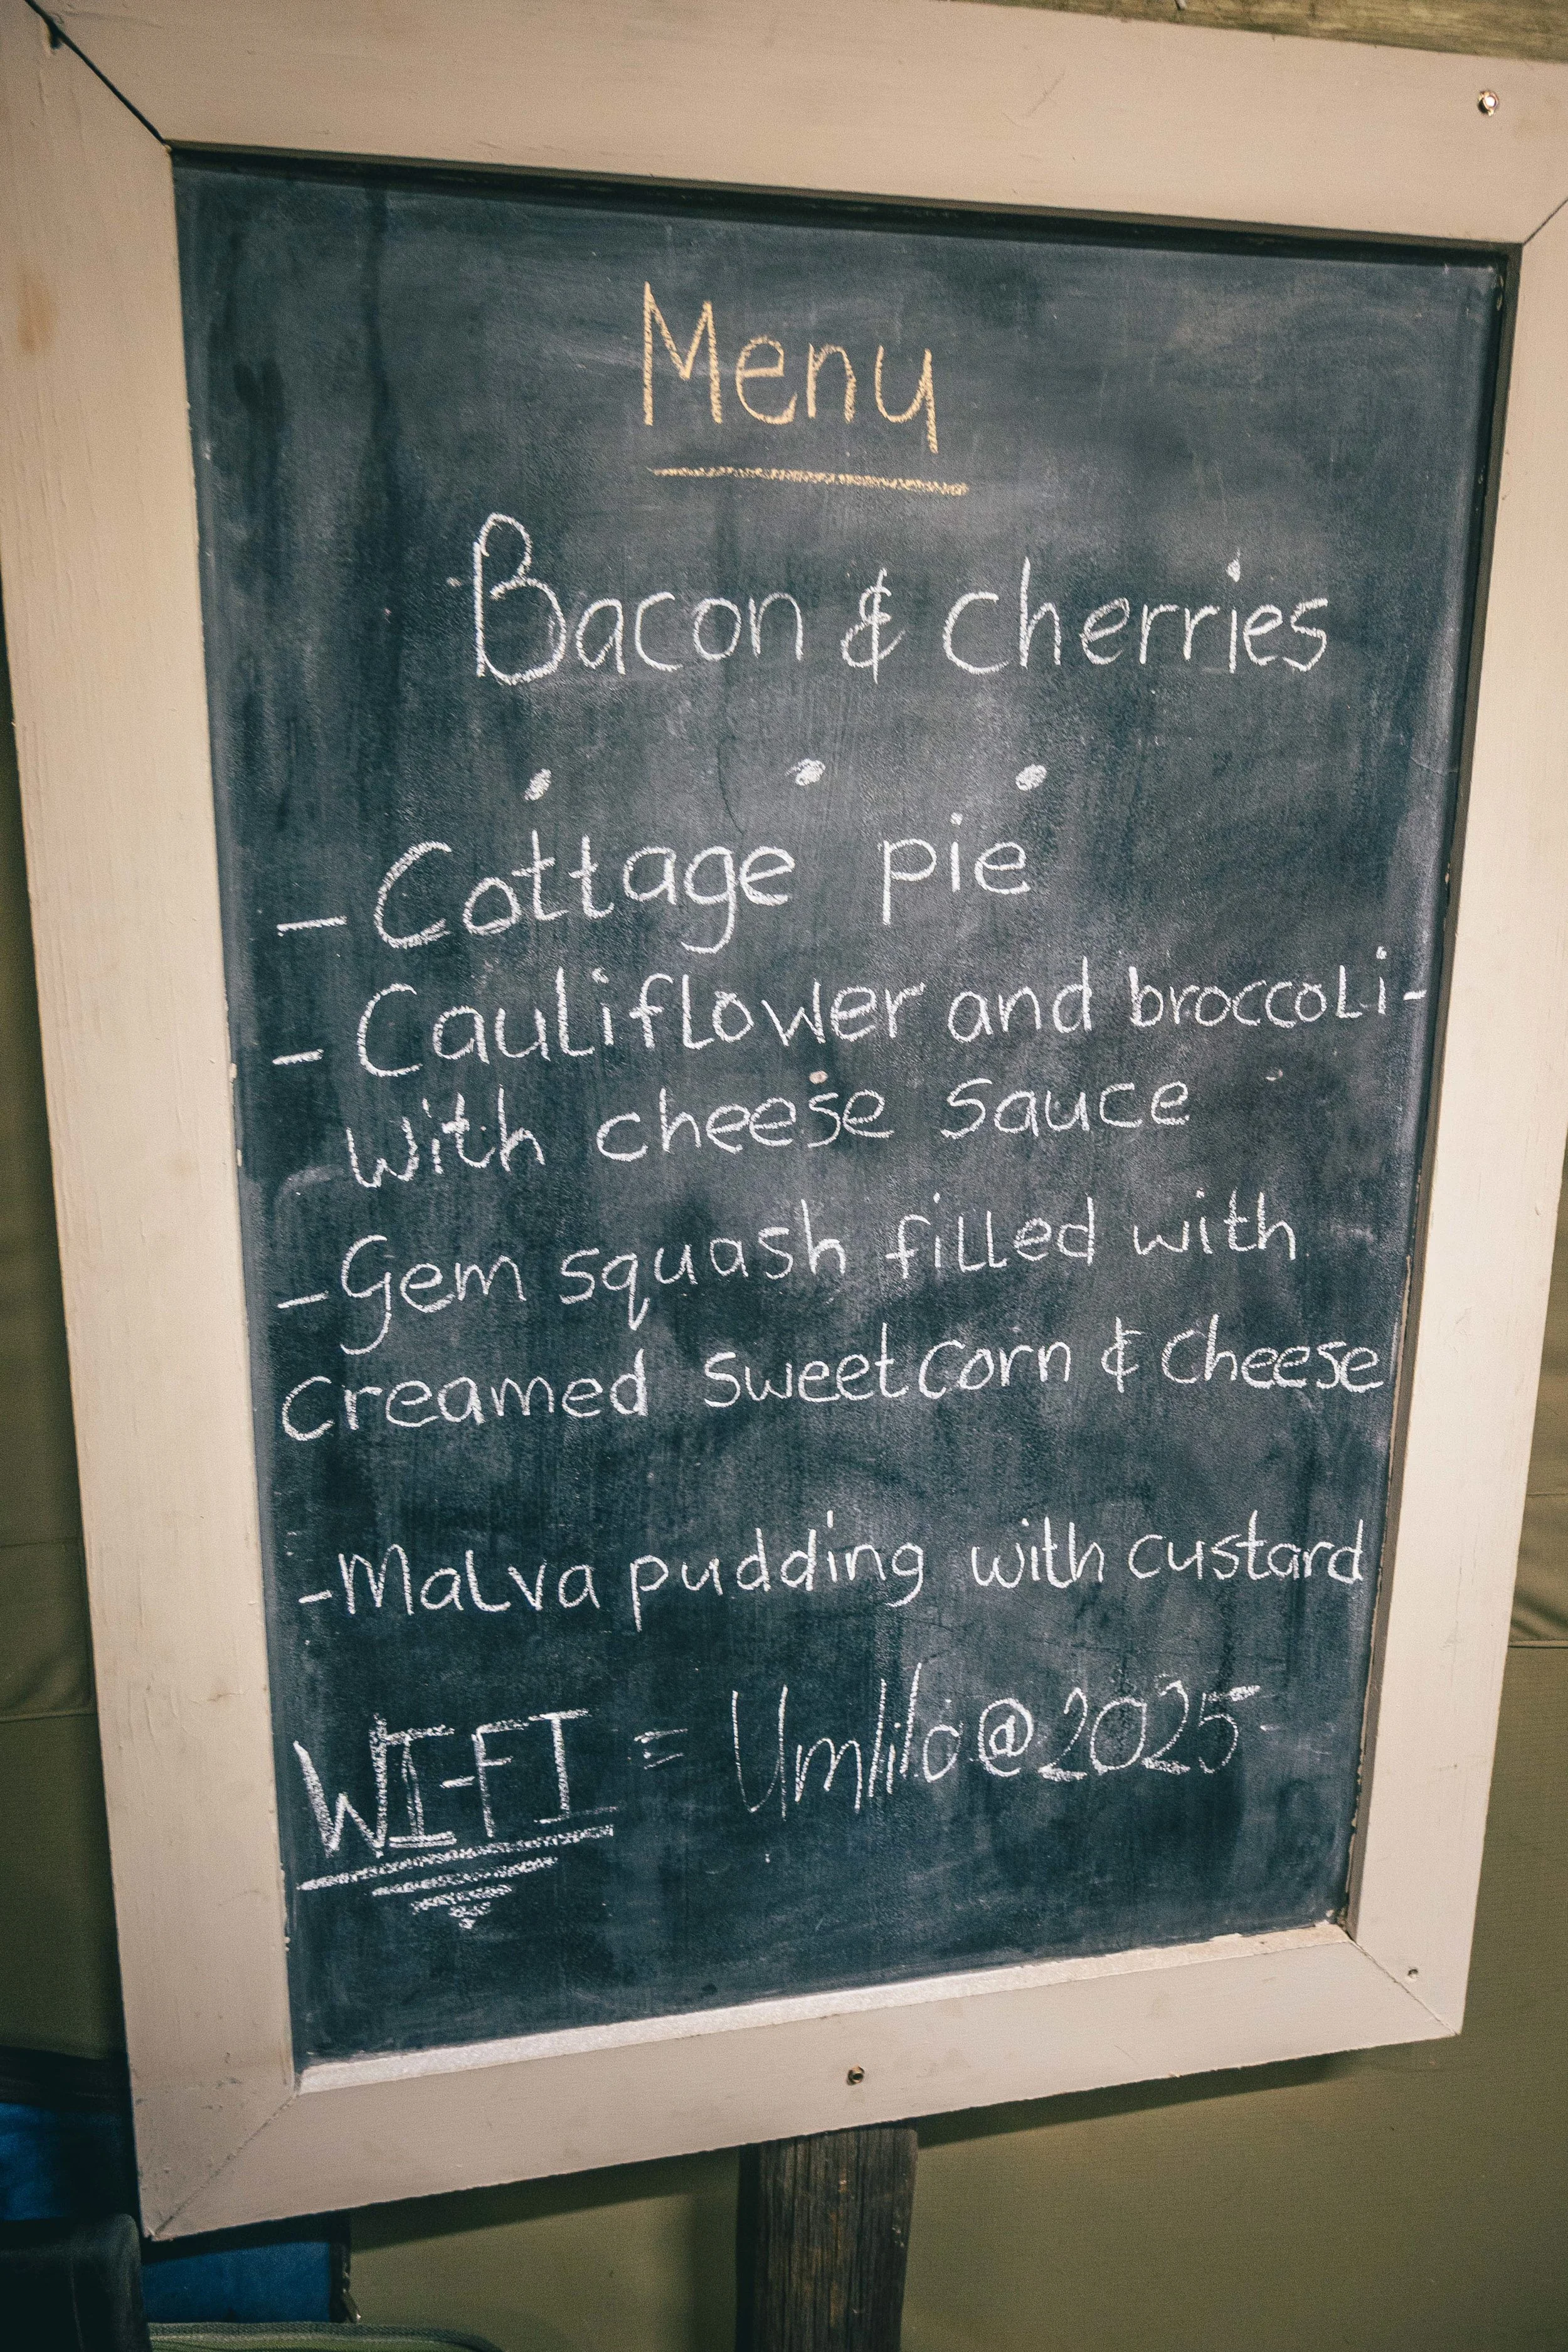 Menu
Bacon & cherries
- Cottage pie
- Cauliflower and broccoli-
with cheese sauce
- Gem squash filled with
creamed sweetcorn & cheese
- Malva pudding with custard
WI-FI = Umlilo@2025